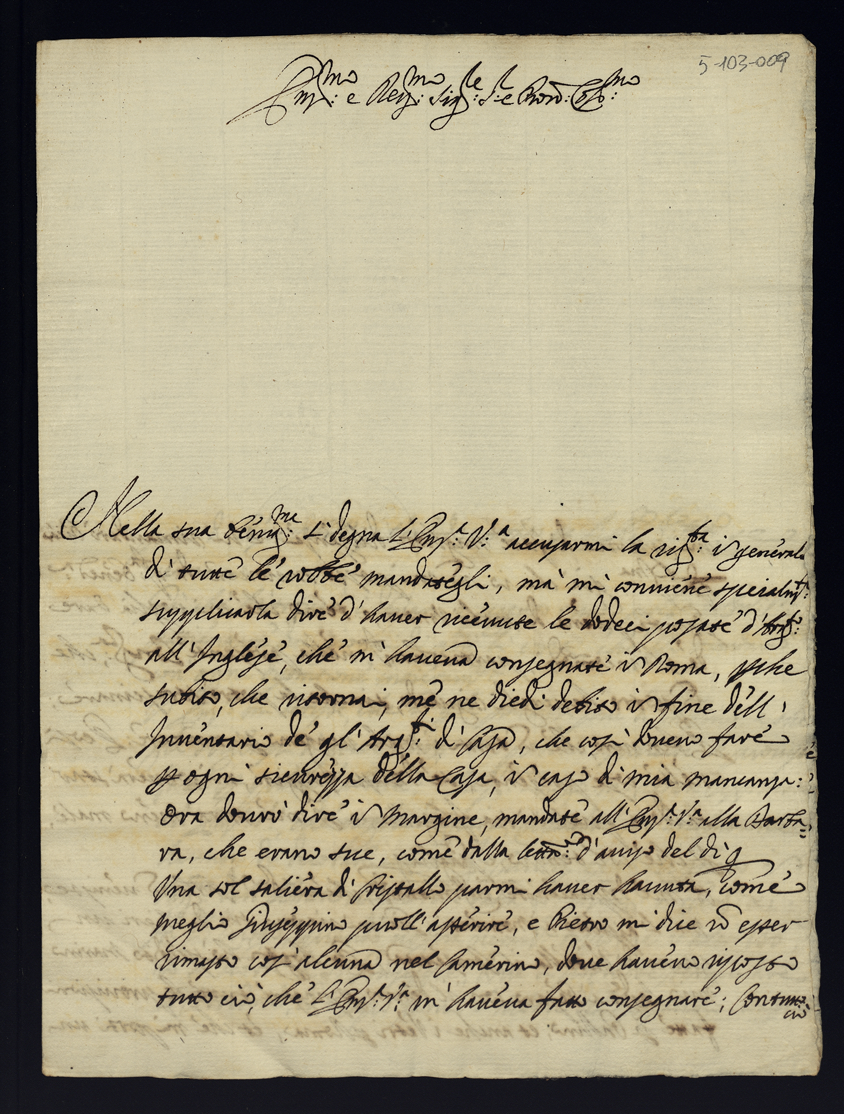 5-103-009
Em:mo e Rev:mo Sig:re S:r e Pron: Col:mo
Nella sua benig:ma si degna l'Em:a V:a accusarmi la ric:ta in generale
di tutte le robbe mandategli, mà mi conviene specialm:te
supplicarla dire d'haver ricevute le dodeci posate d'Arg:to
all'Inglese, che m'haveva consegnate in Roma, perche
subito, che ritornai, me ne diedi debito in fine dell'
Inventario de gl'Arg:ti di Casa, che così devevo fare
per ogni sicurezza della Casa, in caso di mia mancanza:
Ora dovrò dire in Margine, mandate all'Em:a V:a alla Barba
ra, che erano sue, come dalla lett:ra d'aviso del di 9
Una sol saliera di Cristallo parmi haver havuta, come
meglio Giuseppino puoll'asserire, e Pietro mi dice no esser
rimasto cos'alcuna nel Camerino, dove havevo riposto
tutto ciò, che l'Em:a V:a m'haveva fatto consegnare; Contutto
ciò